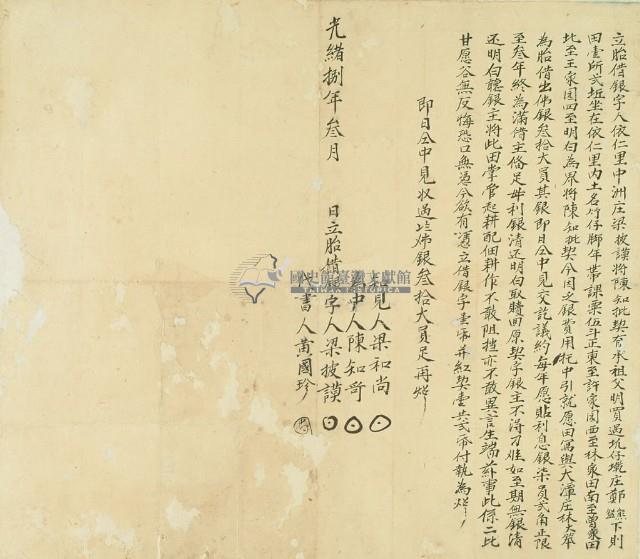 立胎借銀字人依仁里中洲庄梁披謨將陳知批契有承祖父明買過坑仔墘庄鄭 下則
田壹所弍坵坐在依仁里內土名竹仔脚年帶課粟伍斗正東至許家園西至林家田南至曾家田
北至王家園四至明白為界將陳知批契今因乏銀費用托中引就愿田寫與大潭庄林大
為胎借出佛銀叁拾大員其銀即日仝中見交訖議約每年愿貼利息銀柒員弍角正限
至叁年終為滿借主俻足母利銀清還明白取贖回原契字銀主不得刁难如至期無銀清
还明白聽銀主將此田掌管起耕配佃耕作不敢阻擋亦不敢異言生端茲事此係二比
甘愿各無反悔恐口無憑今欲有憑立借銀字壹帋并紅契壹共弍帋付執為炤
即日仝中見收過佛銀叁拾大員足再炤
光緒捌年叁月 日立胎借銀字人梁披謨
知見人梁和尚
為中人陳知
代書人黃國珍
國史館臺灣文獻館
TAIWAN HISTORICA